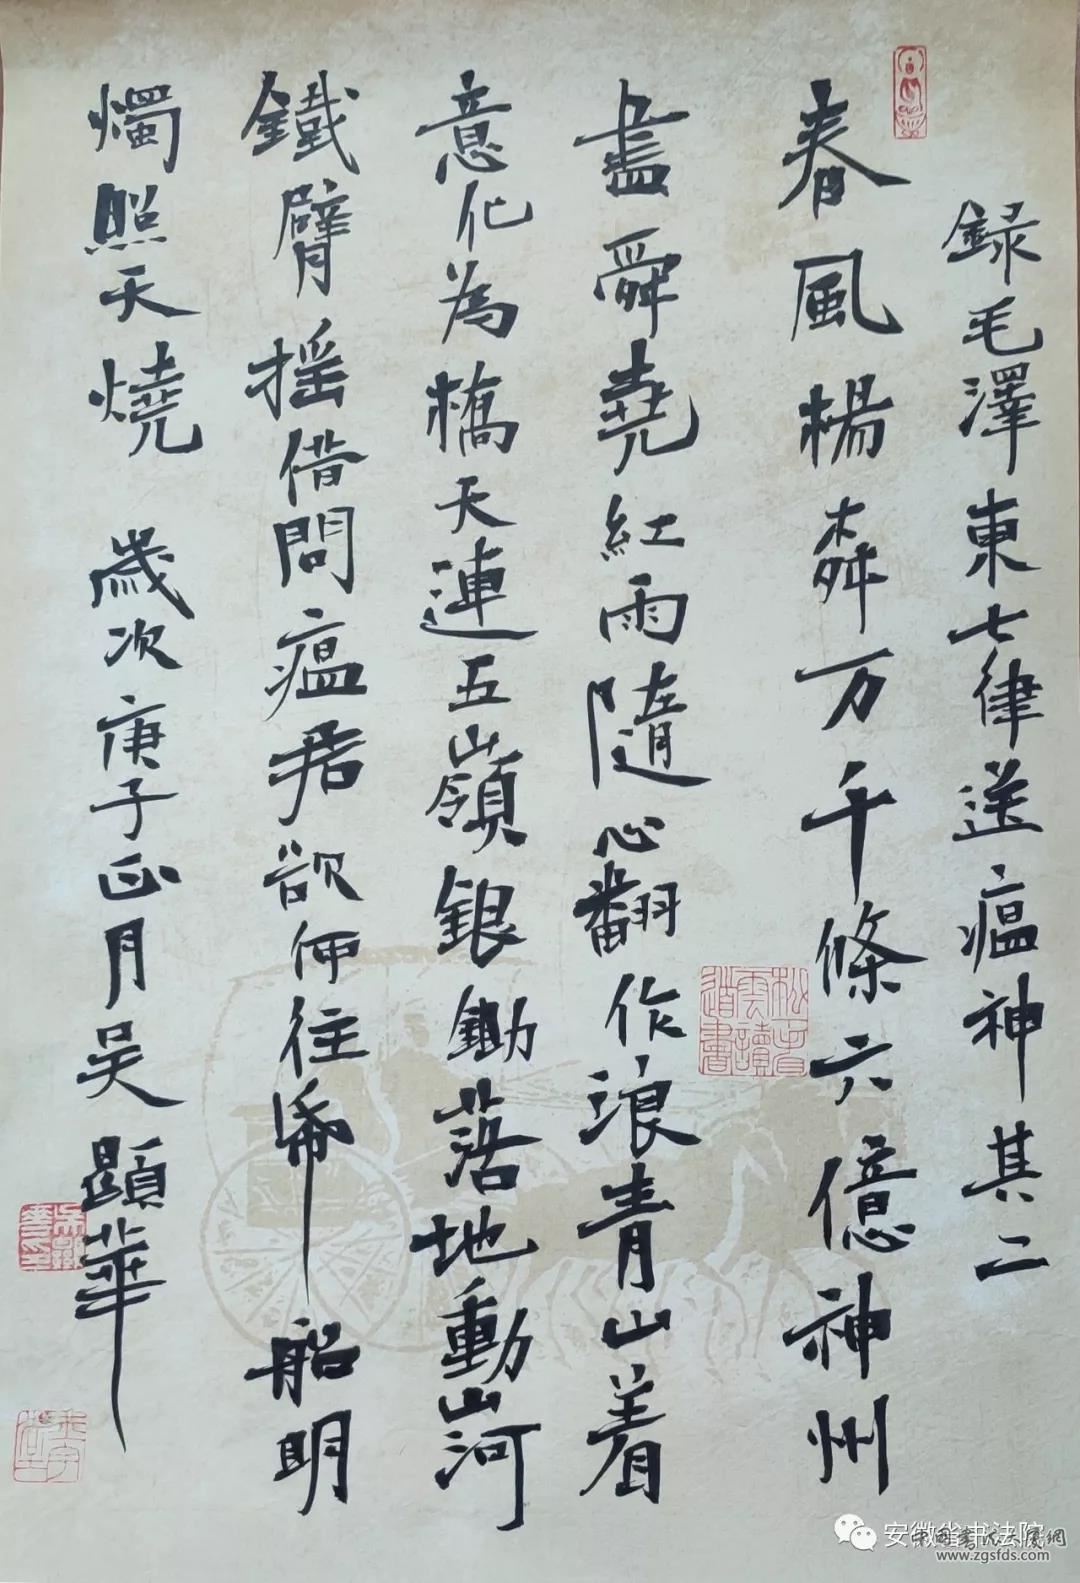 録毛澤東七律送瘟神其二
春風楊柳万千條六億神州
盡舜堯紅雨隨心翻作浪青山着
意化為橋天連五嶺銀鋤落地動山河
鐵臂摇借問瘟君欲何往帋船明
燭照天燒 歲次庚子正月吴顕華
安徽省书法院
www.zgsfds.com